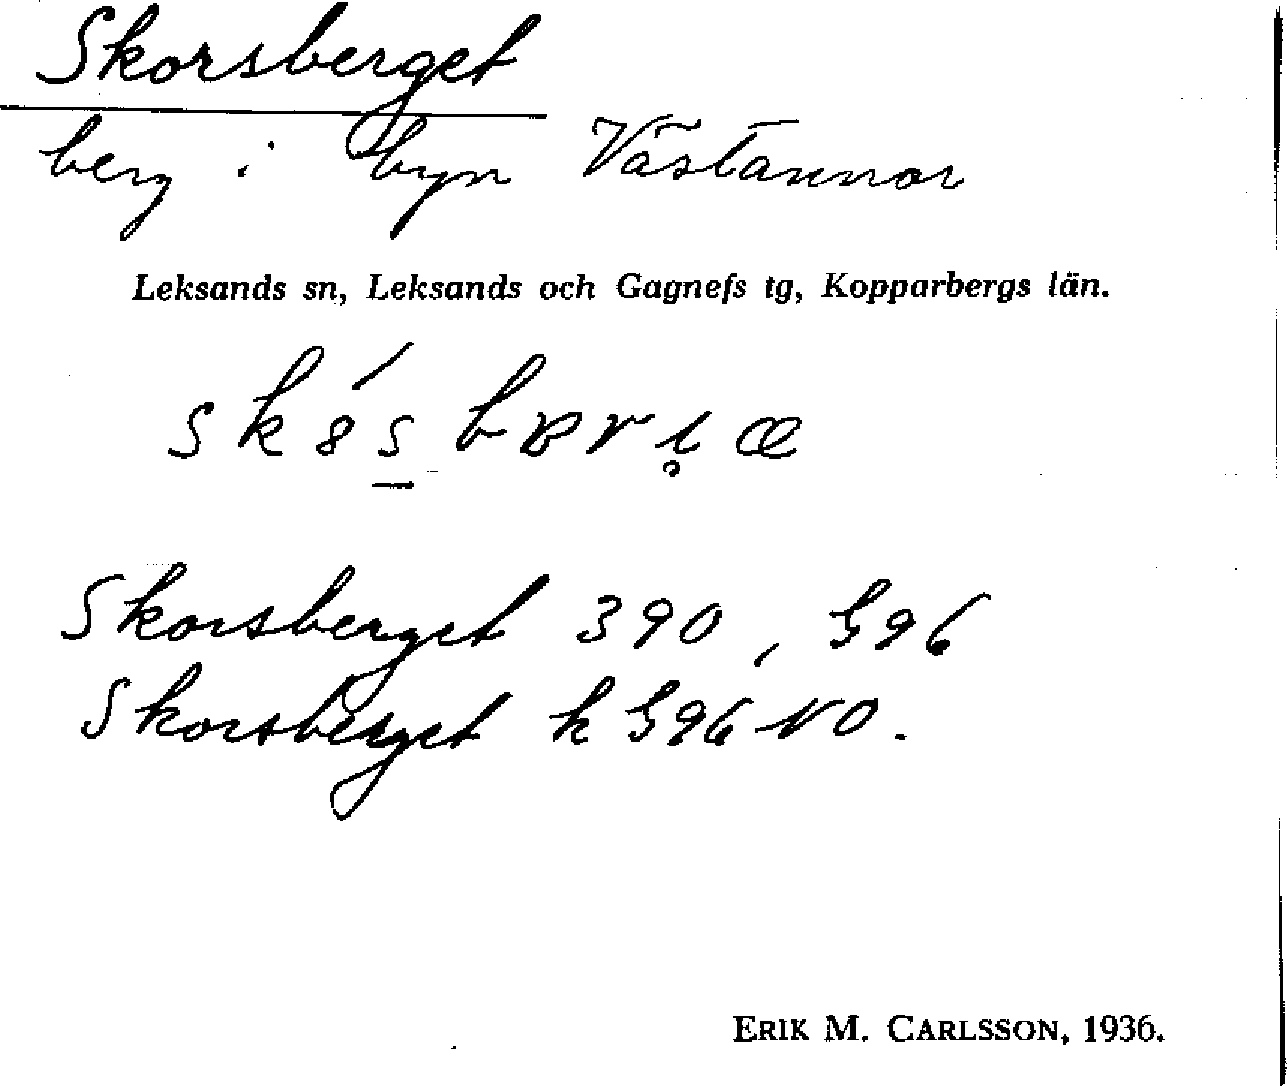 Skorsberget
berg i byn Västannor
Leksands sn, Leksands och Gagnefs tg, Kopparbergs län.
Skorsberget 390, G96
Skorsberget k G96 NO.
ERIK M. CARLSSON, 1936.